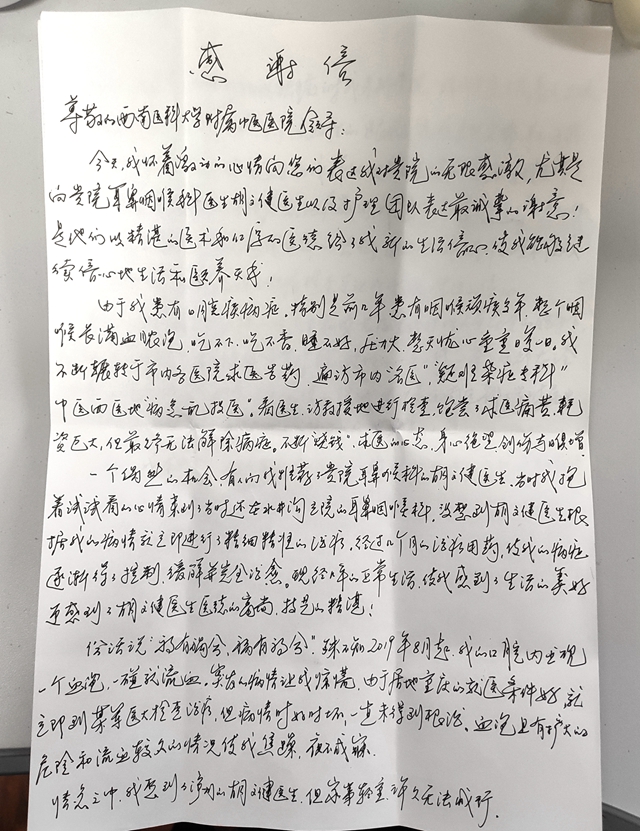 感谢信
尊敬的西南医科大学附属中医医院领导：
今天，我怀着激动的心情向您们表达我对贵院的无限感激，尤其是
向贵院耳鼻咽喉科医生胡文健医生以及护理团队表达最诚挚的谢意！
是他们以精湛的医术和仁厚的医德给了我新的生活信心，使我能够继
续信心地生活和医养天年！
由于我患有口腔疾病症，特别是前几年患有咽喉顽疾多年，整个咽
喉长满血脓泡，吃不下、吃不香、睡不好，压力大，整天忧心重重日复一日。我
不断辗转于市内各医院求医告药，遍访市内"名医"，"疑难杂症专科"
中医西医地"病急乱投医"。看医生，访教授地进行检查，饱尝了求医痛苦，耗
资巨大，但最终无法解除病症。不断"烧钱"、求医的心态，身心绝望创伤与日俱增
一个偶然的机会，有人向我推荐了贵院耳鼻喉科的胡文健医生，当时我抱
着试试看的心情来到了当时还在水井沟主院的耳鼻咽喉科，没想到胡文健医生根
据我的病情就立即进行了精细精准的治疗，经过几个月的治疗用药，使我的病症
逐渐得了控制，缓解并完全治愈。现经几年的正常生活，使我感到了生活的美好
更感到了胡文健医生医德的高尚，技艺的精湛！
俗话说"福有祸兮，祸有福兮"。殊不知2019年8月起，我的口腔内出现
一个血泡，一碰就流血。突发的病情让我惊慌，由于居地重庆的就医条件好，就
立即到某军医大检查治疗，但病情时好时坏，一直未得到根治。血泡且有扩大的
危险和流血较久的情况使我焦躁，夜不成寐。
情急之中，我想到了泸州的胡文健医生，但家事轻重，许久无法成行。